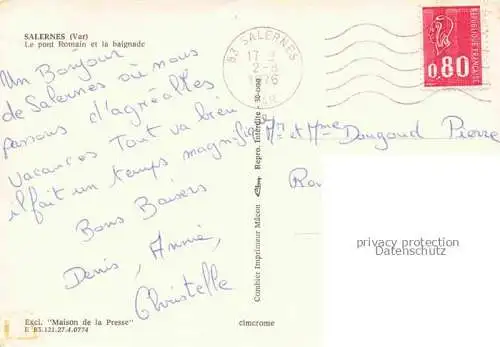 SALERNES (Var)
Le pont Romain et la baignade
Un Bonjour
de Salernes où nous
passons d'agréables
vacances Tout va bien
il fait un temps magnifique
Bons Baisers
Denis, Annie,
Christelle
Excl. "Maison de la Presse"
E 83.121.27.4.0774
Combier Imprimeur Mâcon
Repro. Interdite - 30-000
cimcrome
83 SALERNES
17 H
2-8
1976
VAR
REPUBLIQUE FRANÇAISE
0,80
Mr et Mme Dougoud Pierre
privacy protection
Datenschutz